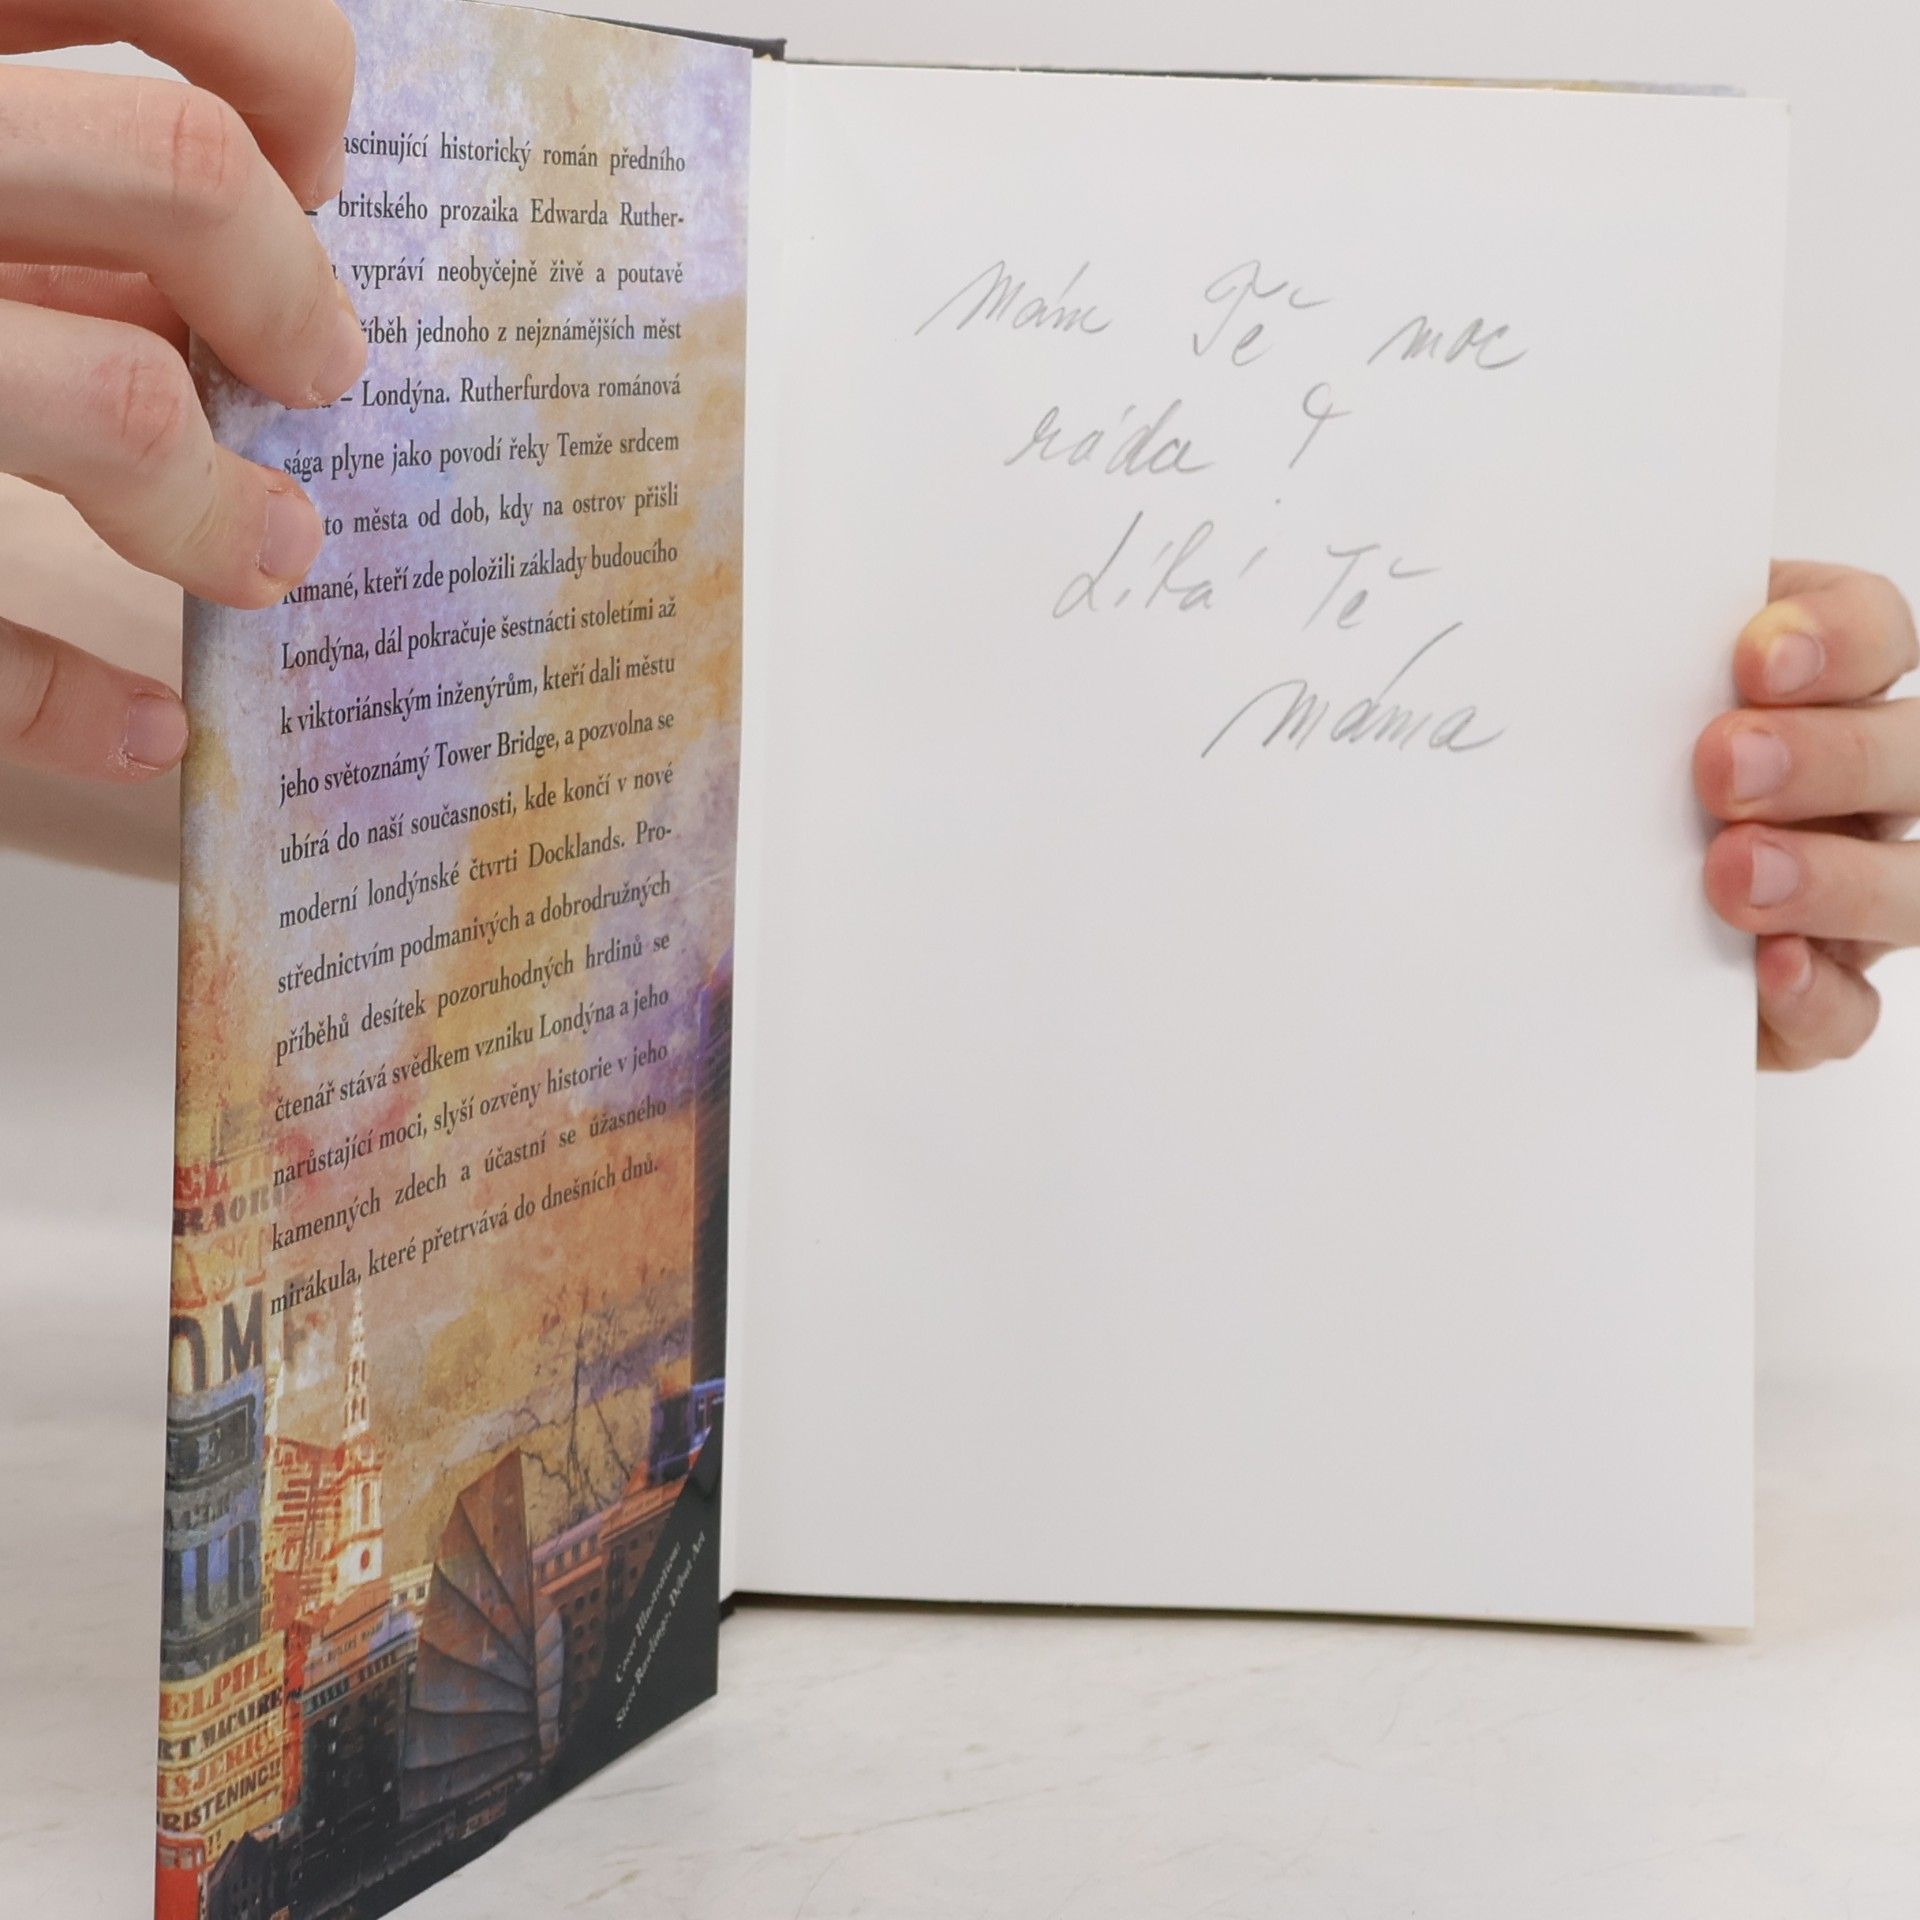 ascinující historický román předního
britského prozaika Edwarda Ruther-
vypráví neobyčejně živě a poutavě
říběh jednoho z nejznámějších měst
– Londýna. Rutherfurdova románová
sága plyne jako povodí řeky Temže srdcem
to města od dob, kdy na ostrov přišli
Římané, kteří zde položili základy budoucího
Londýna, dál pokračuje šestnácti stoletími až
k viktoriánským inženýrům, kteří dali městu
jeho světoznámý Tower Bridge, a pozvolna se
ubírá do naší současnosti, kde končí v nové
moderní londýnské čtvrti Docklands. Pro-
střednictvím podmanivých a dobrodružných
příběhů desítek pozoruhodných hrdinů se
čtenář stává svědkem vzniku Londýna a jeho
narůstající moci, slyší ozvěny historie v jeho
kamenných zdech a účastní se úžasného
mirákula, které přetrvává do dnešních dnů.
Cover Illustration:
Steve Rawlings, Début Art
ELPHI
RT MACAIRE
&JERRY
RISTENING!!
Mám Tě moc
ráda !
Tě
Máma